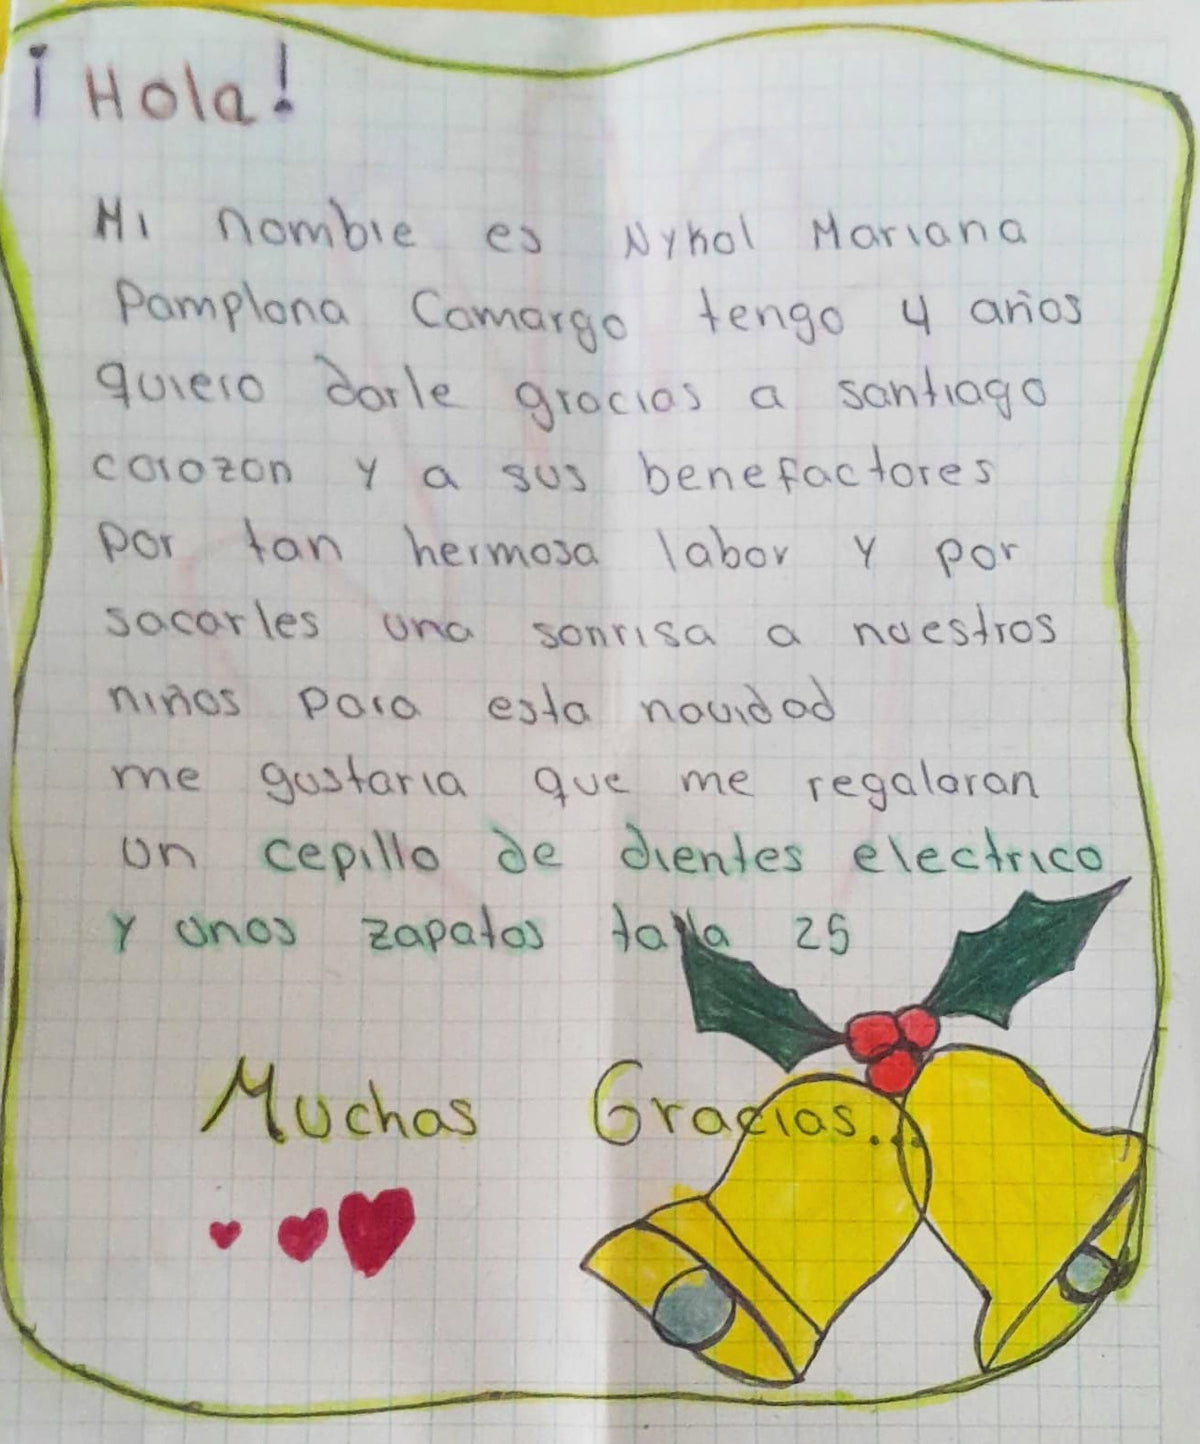 ¡Hola!
Mi nombre es Nykol Mariana
Pamplona Camargo tengo 4 años
quiero darle gracias a santiago
corozon y a sus benefactores
por tan hermosa labor y por
sacarles una sonrisa a nuestros
niños para esta navidad
me gustaria que me regalaran
un cepillo de dientes electrico
y unos zapatos talla 25
Muchas Gracias...